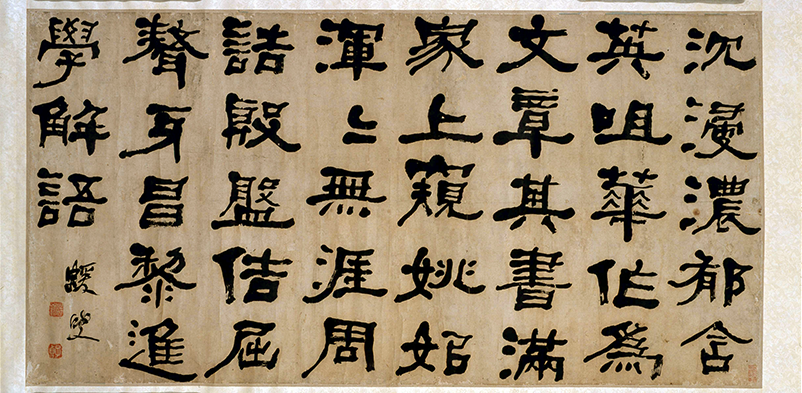 沉浸濃郁含
英咀華作爲
文章其書滿
家上窺姚姒
渾〻無涯周
誥殷盤佶屈
聱牙昌黎進
學解語
蝯叟